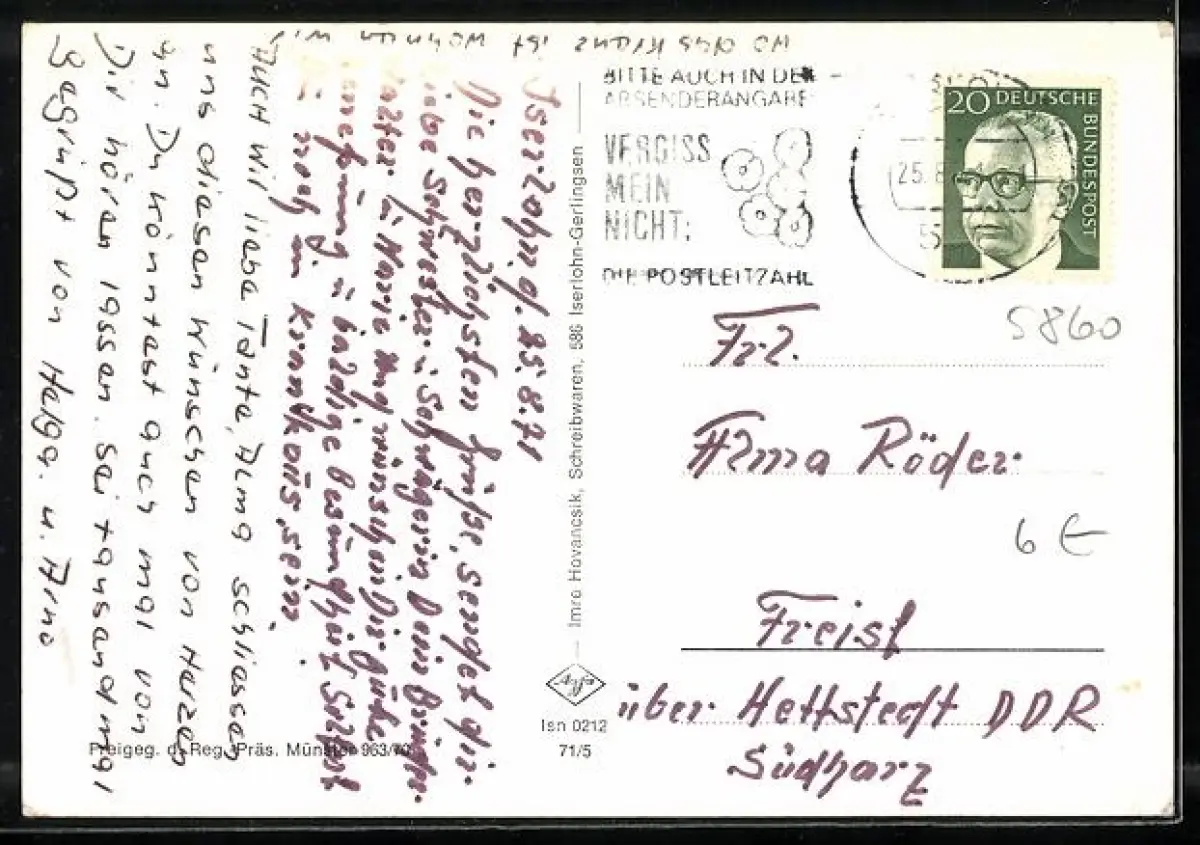 wo das Kreuz ist wohnen wir
Iserlohn, d. 25.8.71
Die herzlichsten Grüße, sendet dir
liebe Schwester u. Schwägerin Dein Bruder
Walter u. Marie und wünschen Dir Gute
u. baldige Gesundheit. Sollst
noch im Krankenhaus sein.
Auch wir liebe Tante, Alma schliessen
uns diesen Wünschen von Herzen
an. Du könntest auch mal von
Dir hören lassen. Sei tausandmal
Gegrüßt von Helga. u. Arno
Imre Hovancsik, Schreibwaren, 586 Iserlohn-Gerlingsen
Isn 0212
71/5
Freigeg. d. Reg. Präs. Münster 963/70
BITTE AUCH IN DER
ABSENDERANGABE
VERGISS
MEIN
NICHT:
DIE POSTLEITZAHL
25.8.
20 DEUTSCHE
BUNDESPOST
5860
Frl.
Alma Röder
6 €
Freist
über Hettstedt DDR
Südharz